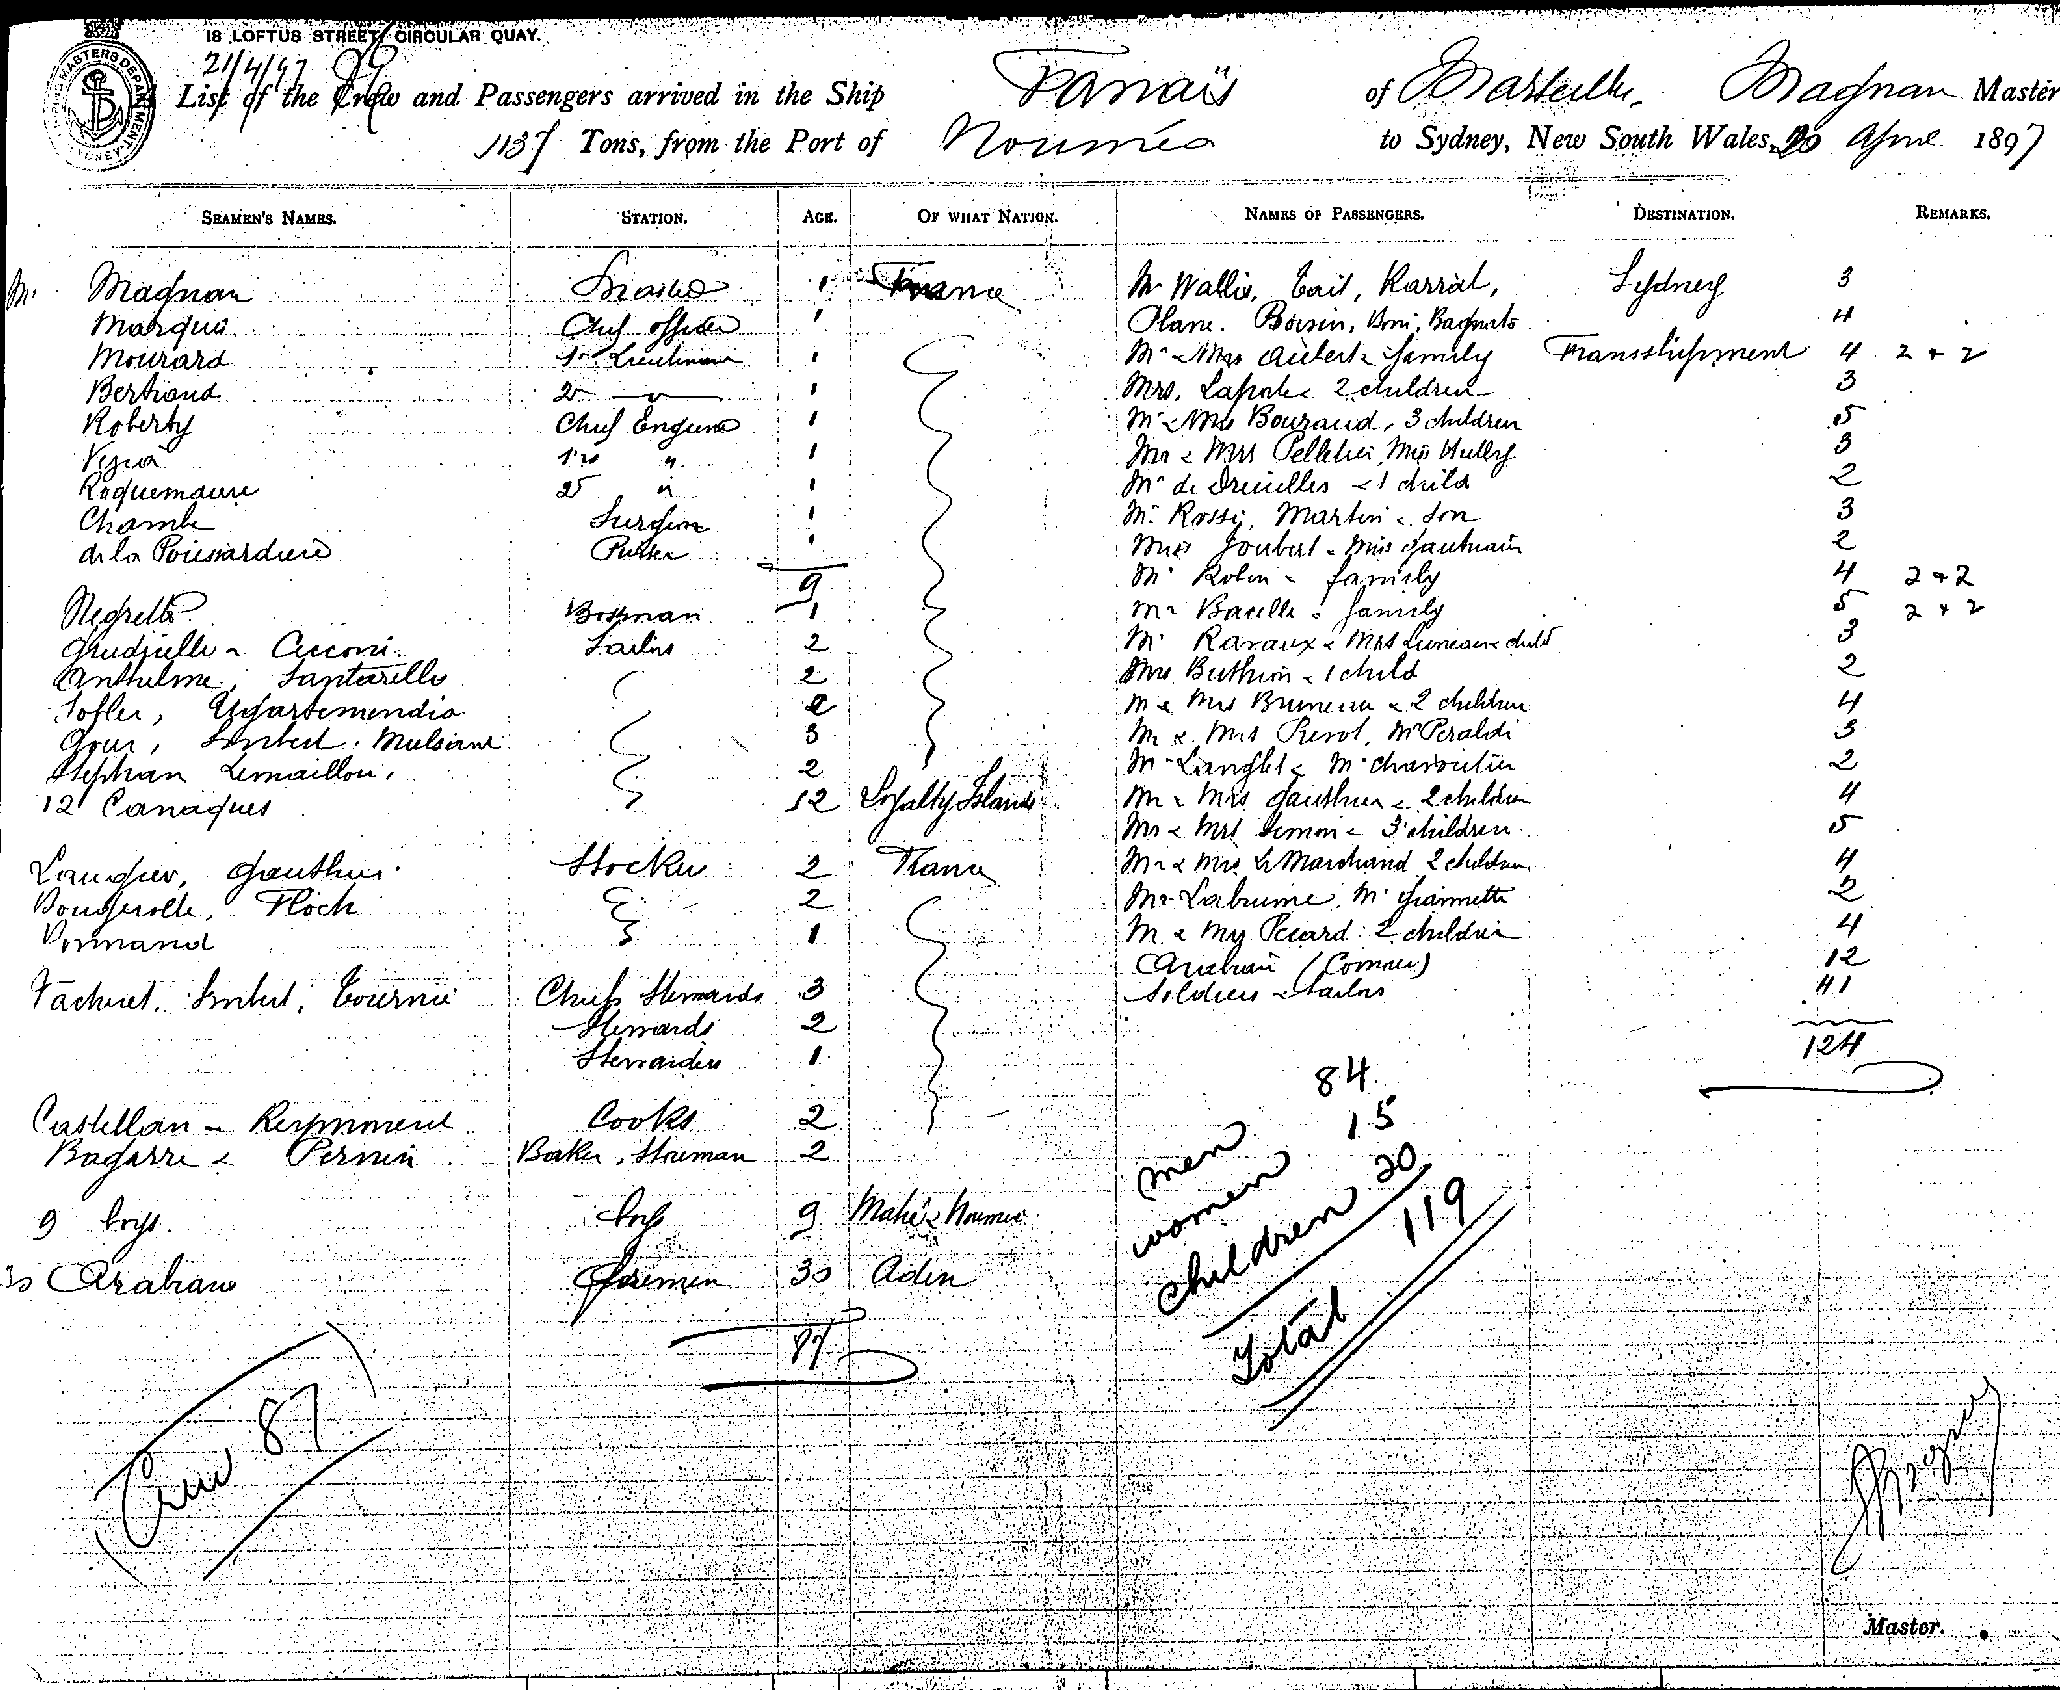 18 LOFTUS STREET, CIRCULAR QUAY.
21/4/97
List of the Crew and Passengers arrived in the Ship Tanaïs of Marseille, Magnan Master
1137 Tons, from the Port of Nouméa to Sydney, New South Wales, 20 April 1897
SEAMEN'S NAMES. STATION. AGE. OF WHAT NATION. NAMES OF PASSENGERS. DESTINATION. REMARKS.
Mr. Magnan Master 1 France Mr Wallis, Tait, Karrial, Sydney 3
Marquis Chief officer 1 Plane. Boisin, Boni, 4
Mourard 1er Lieutenant 1 Mr & Mrs Aubert & family Transshipment 4 2 + 2
Bertrand 2d " 1 Mrs. Laporte 2 children 3
Roberty Chief Engine 1 Mr & Mrs Bouraud, 3 children 5
1er " 1 Mr & Mrs Pelletier, Miss Hully 3
Roquemaure 2d " 1 Mr de & 1 child 2
Chambe Surgeon 1 Mr. Rossi, Martin & Son 3
de la Poissardiere Purser 1 Miss Joubert & Miss 2
9 Mr Robin & family 4 2 + 2
Negrello Bosman 1 Mr Bacelle & family 5 2 + 2
& Cicconi Sailors 2 Mr Ravaux & Mrs & child 3
Anthelme, Santarelli 2 Mrs Buthion & 1 child 2
Tofler, Ugartemendia 2 Mr & Mrs Bruneau & 2 children 4
Gour, Imbert, 3 Mr & Mrs Prevot, Mr Peraldi 3
Stephan Lemaillou, 2 Mr Langlet & Mr Charoutier 2
12 Canaques 12 Loyalty Islands Mr & Mrs Gauthier & 2 children 4
Mr & Mrs Simon & 3 children 5
Laugier, Gauthier Stocker 2 France Mr & Mrs Le Marchand 2 children 4
Bougerolle, Floch 2 Mr Labrume, Mr Giannetti 2
Normand 1 M & My Picard 2 children 4
Arabian 12
Vacheret, Imbert, Tournié Chiefs Stewards 3 Soldiers & sailors 41
Stewards 2
124
Stewardess 1
84
Castellan & Reymonent Cooks 2
men 15
Bagarre & Pernin Baker, Storeman 2
women 20
9 boys. boys 9 Mahé & Nouméa
children 119
30 Arabians Firemen 30 Aden
Total
87
Crew 87
Master.